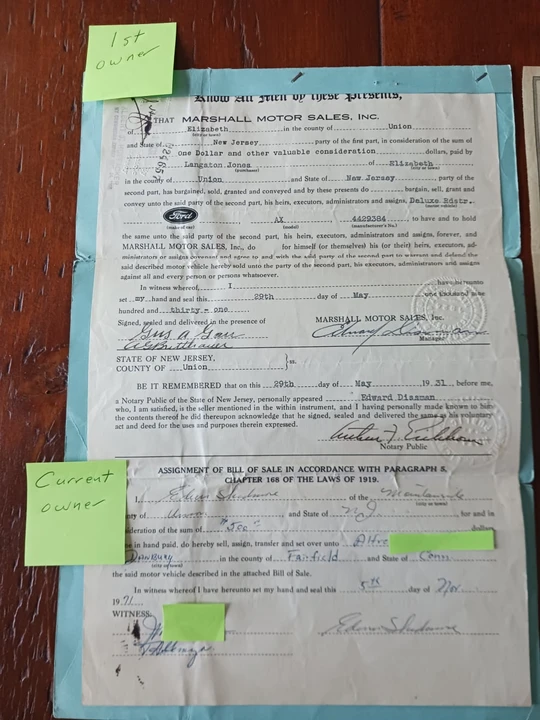 1st
owner
Know All Men by these Presents,
THAT MARSHALL MOTOR SALES, INC.
of Elizabeth in the county of Union
(city or town)
and State of New Jersey party of the first part, in consideration of the sum
of one Dollar and other valuable consideration dollars, paid by
Langston Jones of Elizabeth
(purchaser) (city or town)
in the county of Union and State of New Jersey party of the
second part, has bargained, sold, granted and conveyed and by these presents do bargain, sell, grant and
convey unto the said party of the second part, his heirs, executors, administrators and assigns, Deluxe Rdstr.
Ford AX 4429384 to have and to hold
(make of car) (model) (manufacturer's No.)
the same unto the said party of the second part, his heirs, executors, administrators and assigns forever, and
MARSHALL MOTOR SALES, Inc., do for himself (or themselves) his (or their) heirs, executors, ad-
ministrators or assigns covenant and agree to and with the said party of the second part to warrant and defend the
said described motor vehicle hereby sold unto the party of the second part, his executors, administrators and assigns
against all and every person or persons whatsoever.
In witness whereof, I have hereunto
set my hand and seal this 29th day of May one thousand nine
hundred and thirty - one
Signed, sealed and delivered in the presence of MARSHALL MOTOR SALES, Inc.
Manager
STATE OF NEW JERSEY,
COUNTY OF Union } ss.
BE IT REMEMBERED that on this 29th day of May 1931 before me,
a Notary Public of the State of New Jersey, personally appeared Edward Dissman
who, I am satisfied, is the seller mentioned in the within instrument, and I having personally made known to him
the contents thereof he did thereupon acknowledge that he signed, sealed and delivered the same as his voluntary
act and deed for the uses and purposes therein expressed.
Notary Public
ASSIGNMENT OF BILL OF SALE IN ACCORDANCE WITH PARAGRAPH 5,
CHAPTER 168 OF THE LAWS OF 1919.
Current
owner
I, of the Mountainside
(city or town)
of Union and State of NJ for and in
consideration of the sum of dollars
in hand paid, do hereby sell, assign, transfer and set over unto
Danbury in the county of Fairfield and State of Conn
(city or town)
the said motor vehicle described in the attached Bill of Sale.
In witness whereof I have hereunto set my hand and seal this 5th day of Nov.
1971
WITNESS: